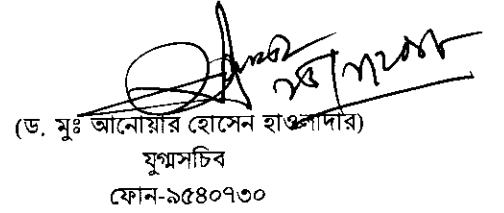 (ড. মুঃ আনোয়ার হোসেন হাওলাদার)
যুগ্মসচিব
ফোন-৯৫৪০৭৩০